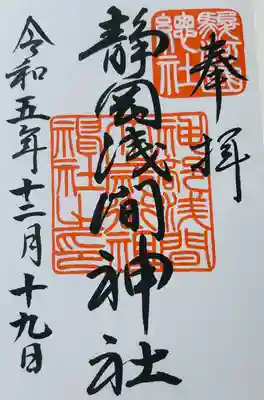 奉拝
駿府
總社
静岡浅間神社
神部浅間
大歳御祖
神社之印
令和五年十二月十九日